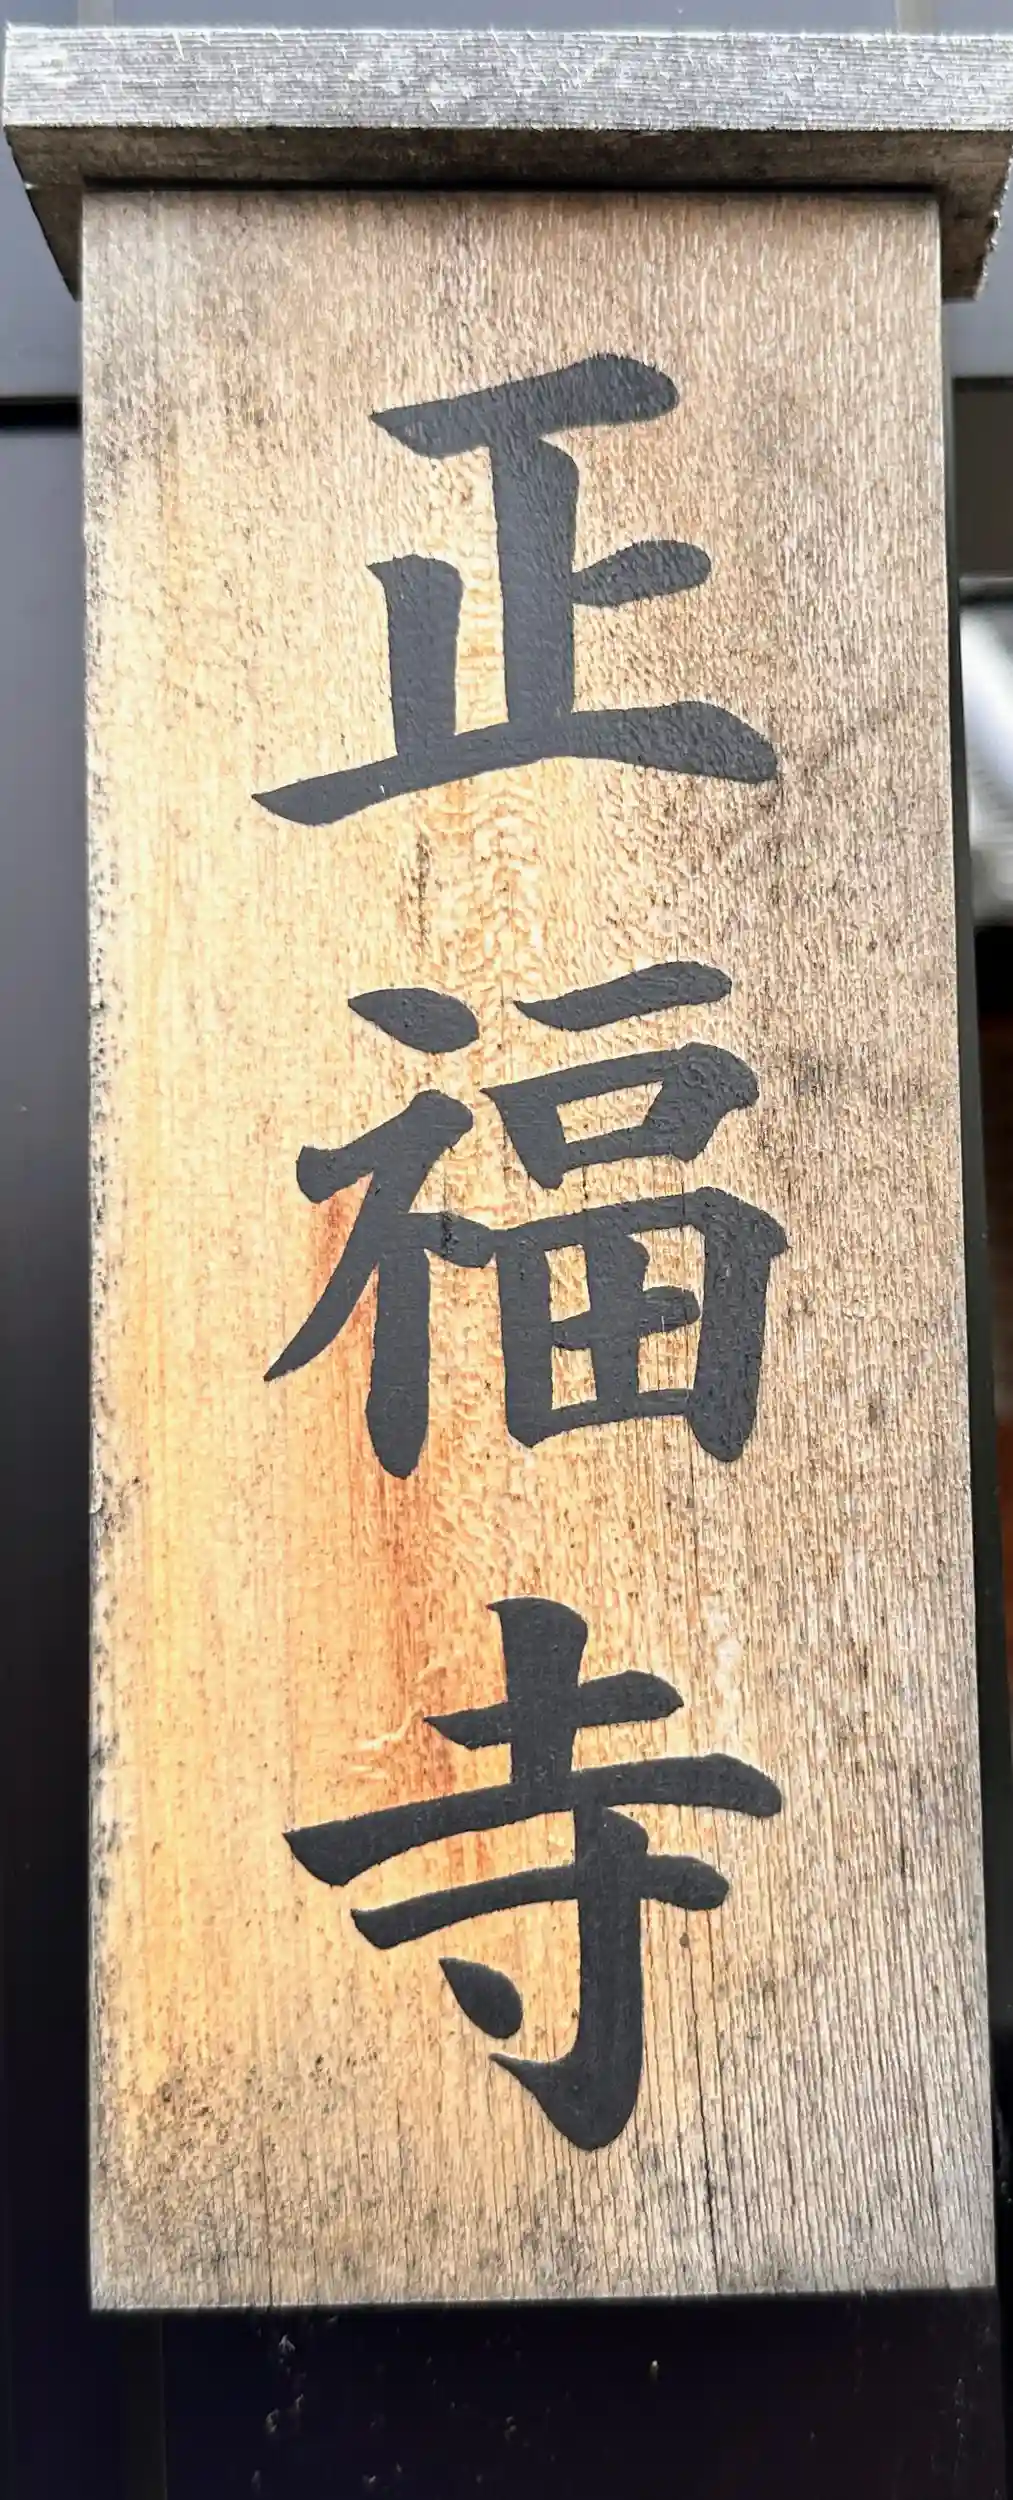 正福寺